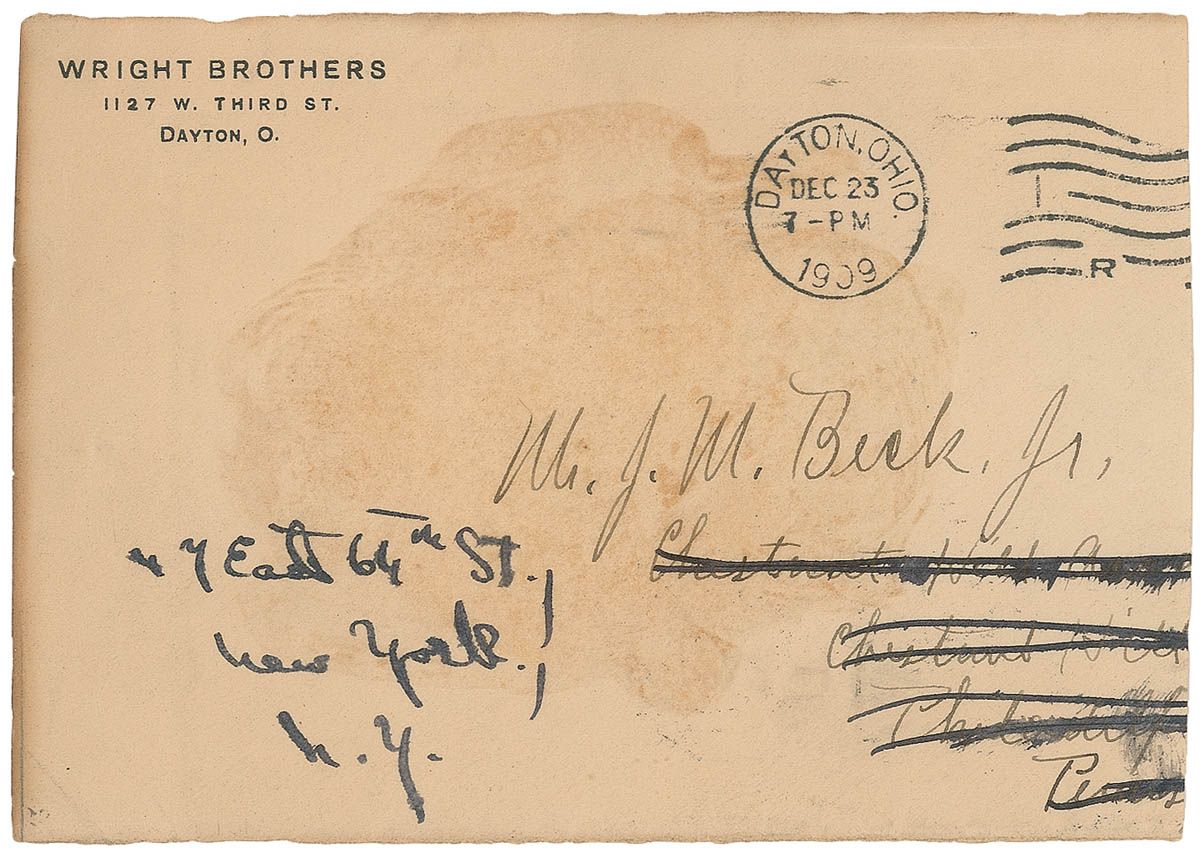 WRIGHT BROTHERS
1127 W. THIRD ST.
DAYTON, O.
DAYTON, OHIO.
DEC 23
7-PM
1909
R
Mr. J. M. Beck, Jr,
Chestnut Hill
Chestnut Hill
7 East 64th St.
New York.
N. Y.